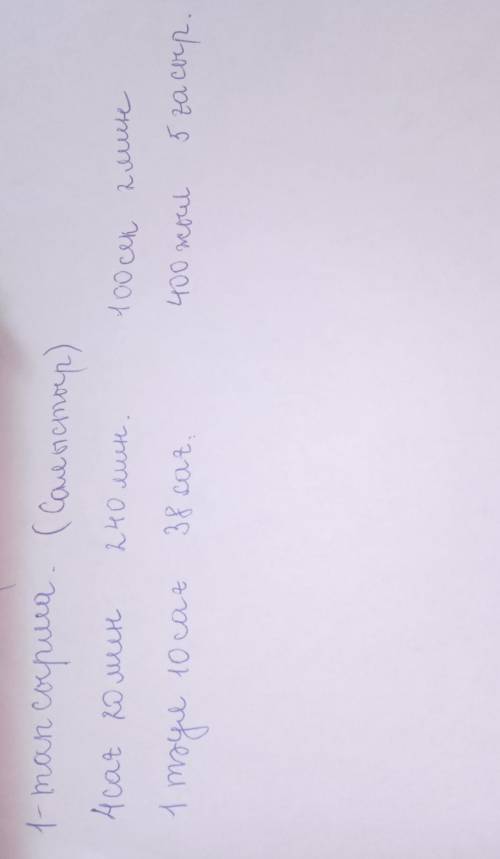 1-тапсырма. (Салыстыр)
4сағ 20мин 240мин. 100сек 2мин
1 тәул 10сағ 38сағ. 400жыл 5ғасыр.